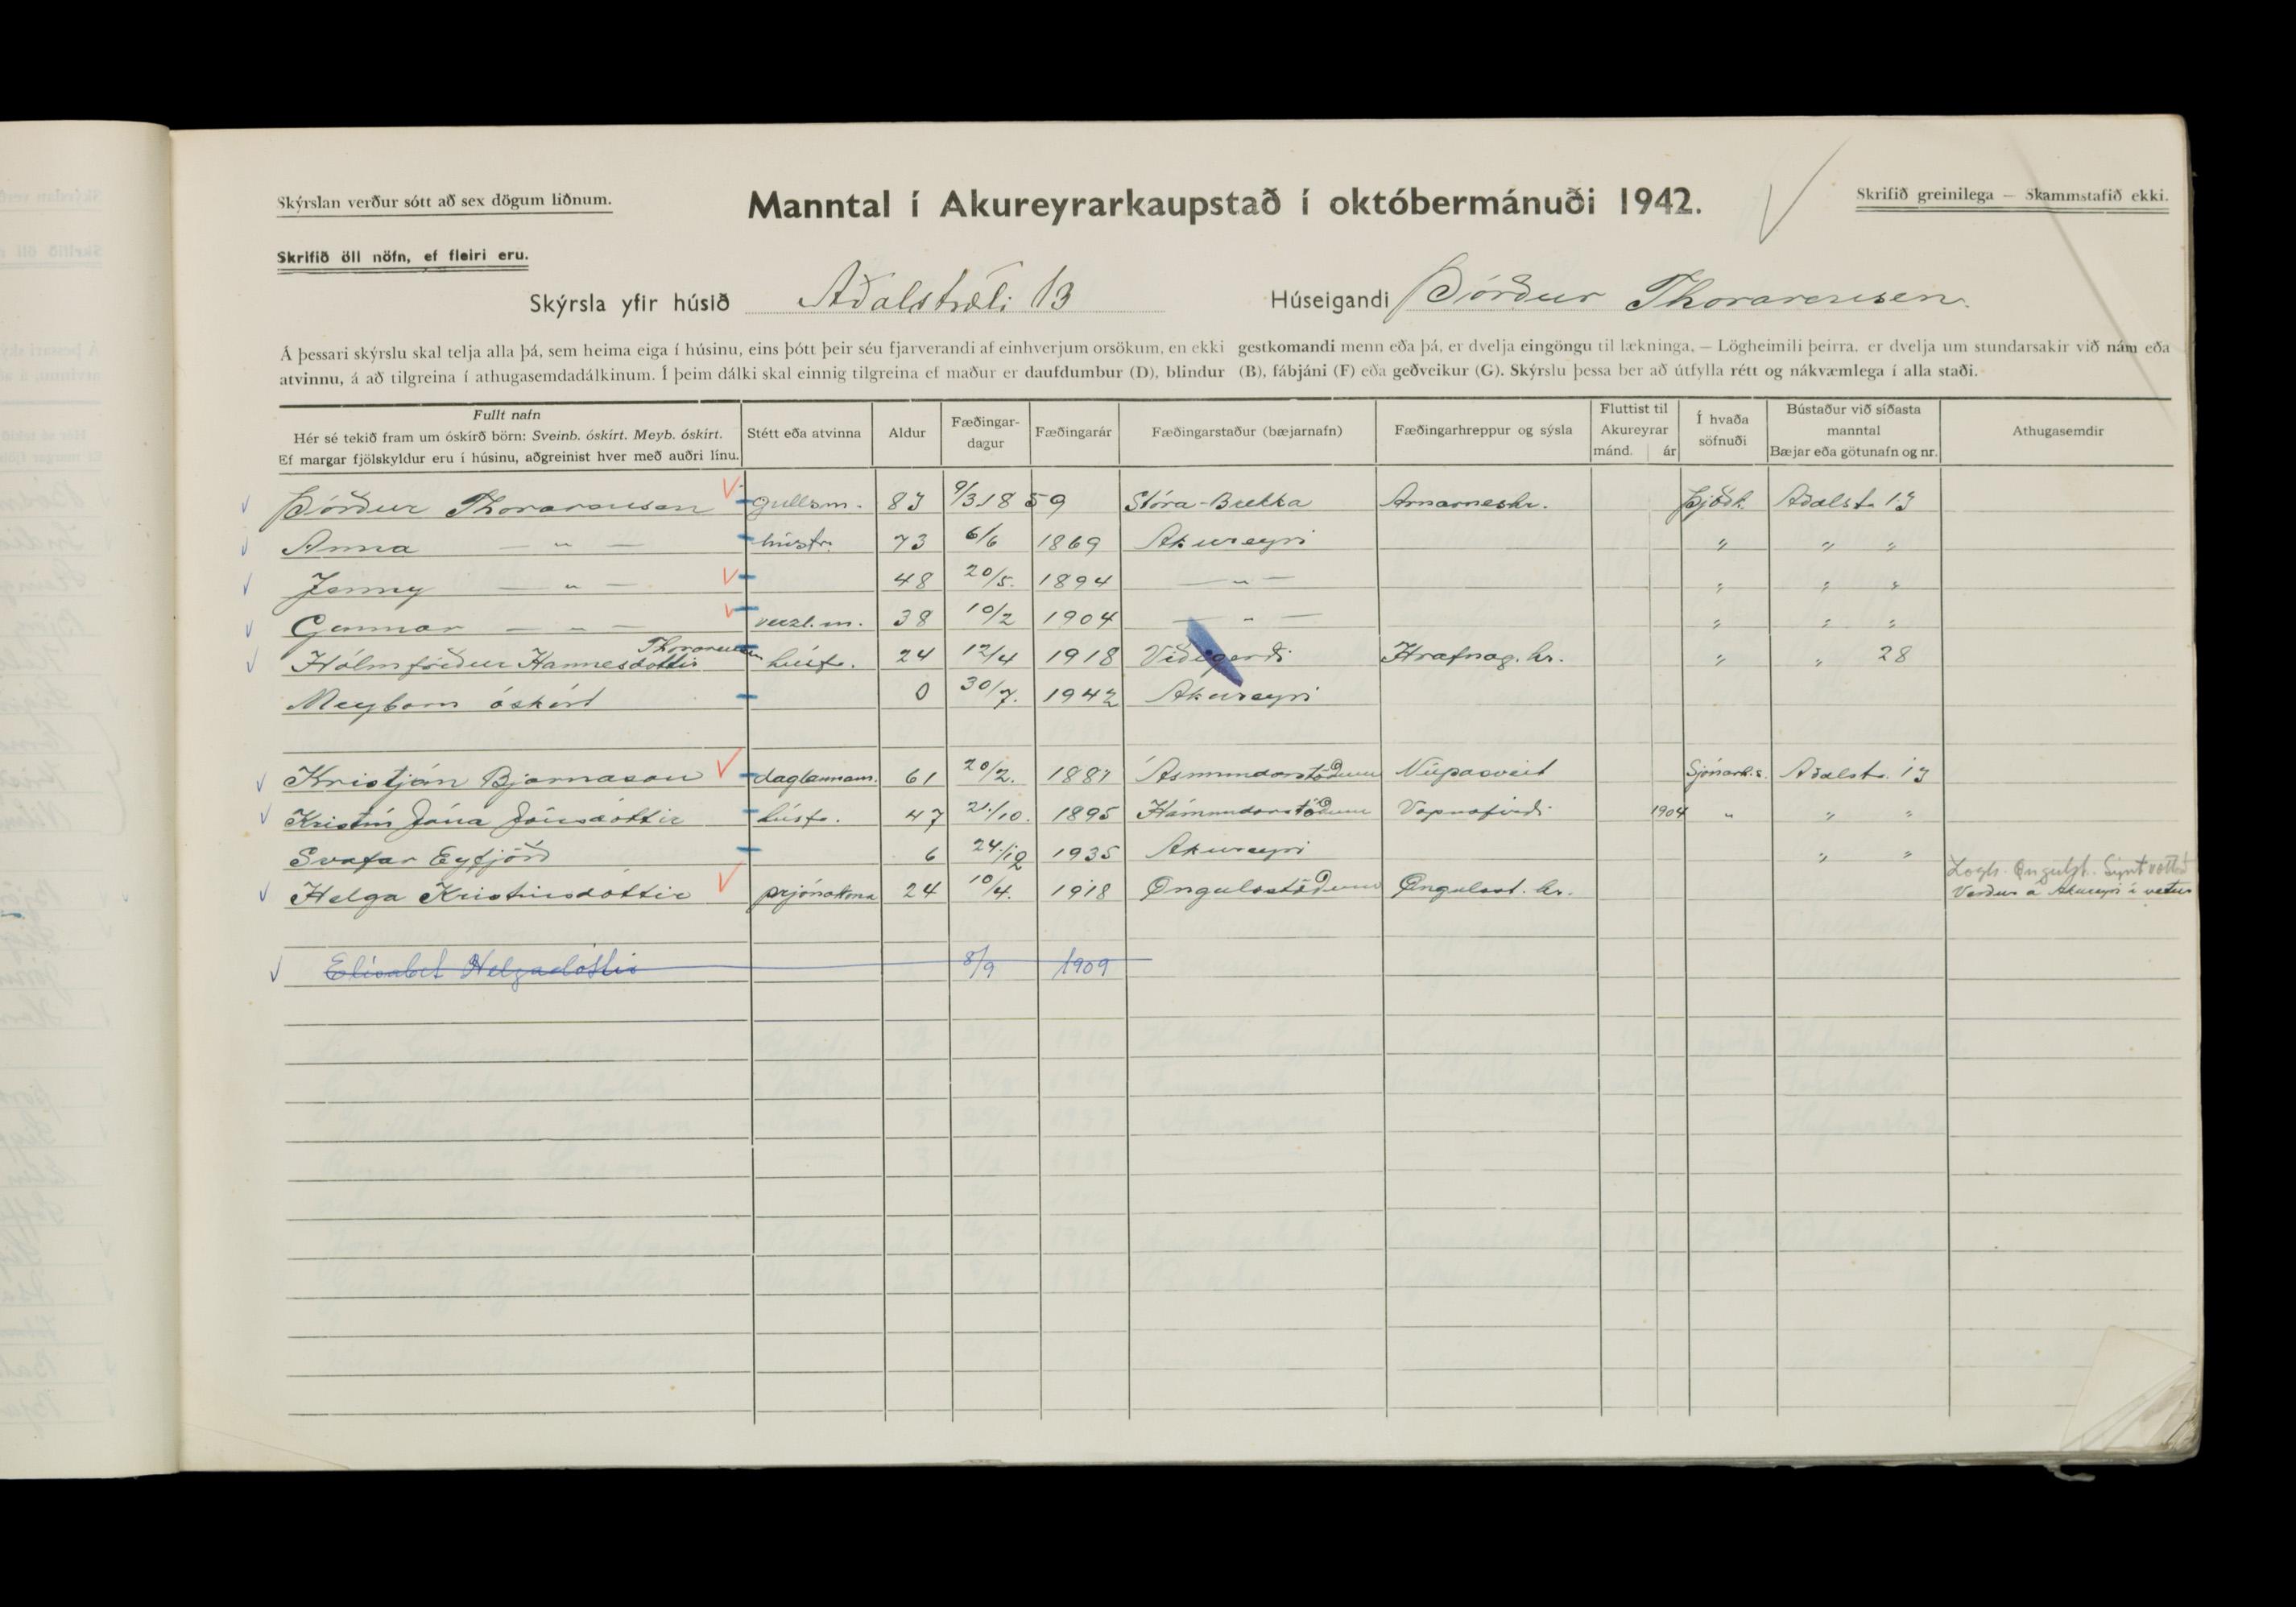 Skýrslan verður sótt að sex dögum liðnum.
Manntal í Akureyrarkaupstað í októbermánuði 1942.
Skrifið greinilega — Skammstafið ekki.
Skrifið öll nöfn, ef fleiri eru.
Skýrsla yfir húsið Aðalstræti 13 Húseigandi Þórður Thorarensen.
Á þessari skýrslu skal telja alla þá, sem heima eiga í húsinu, eins þótt þeir séu fjarverandi af einhverjum orsökum, en ekki gestkomandi menn eða þá, er dvelja eingöngu til lækninga, — Lögheimili þeirra, er dvelja um stundarsakir við nám eða
atvinnu, á að tilgreina í athugasemdadálkinum. Í þeim dálki skal einnig tilgreina ef maður er daufdumbur (D), blindur (B), fábjáni (F) eða geðveikur (G). Skýrslu þessa ber að útfylla rétt og nákvæmlega í alla staði.
Fullt nafn
Hér sé tekið fram um óskírð börn: Sveinb. óskírt. Meyb. óskírt.
Ef margar fjölskyldur eru í húsinu, aðgreinist hver með auðri línu.
Stétt eða atvinna
Aldur
Fæðingar-
dagur
Fæðingarár
Fæðingarstaður (bæjarnafn)
Fæðingarhreppur og sýsla
Fluttist til
Akureyrar
mánd. ár
Í hvaða
söfnuði
Bústaður við síðasta
manntal
Bæjar eða götunafn og nr.
Athugasemdir
Þórður Thorarensen gullsm. 83 9/3 1859 Stóra-Brekka Arnarneshr. Þjóðk. Aðalst. 13
Anna — „ — hústr. 73 6/6 1869 Akureyri „ „ „
Jenny — „ — 48 20/5. 1894 — „ — „ „ „
Gunnar — „ — verzl.m. 38 10/2 1904 — „ — „ „ „
Thorarensen
Hólmfríður Hannesdóttir húsfr. 24 12/4 1918 Víðigerði Hrafnag. hr. „ „ 28
Meybarn óskírt 0 30/7. 1942 Akureyri
Kristján Bjarnason daglaunam. 61 20/2. 1881 Ásmundarstöðum Núpasveit Sjónarh.s. Aðalstr. 13
Kristín Jóna Jónsdóttir húsfr. 47 21/10. 1895 Hámundarstöðum Vopnafirði 1904 „ „ „
Svafar Eyfjörð 6 24/12 1935 Akureyri „ „
Helga Kristinsdóttir prjónakona 24 10/4. 1918 Öngulsstöðum Öngulsst. hr.
Lögh. Öngulst. Sýnt vottorð
Verður á Akureyri í vetur
Elísabet Helgadóttir 8/9 1909